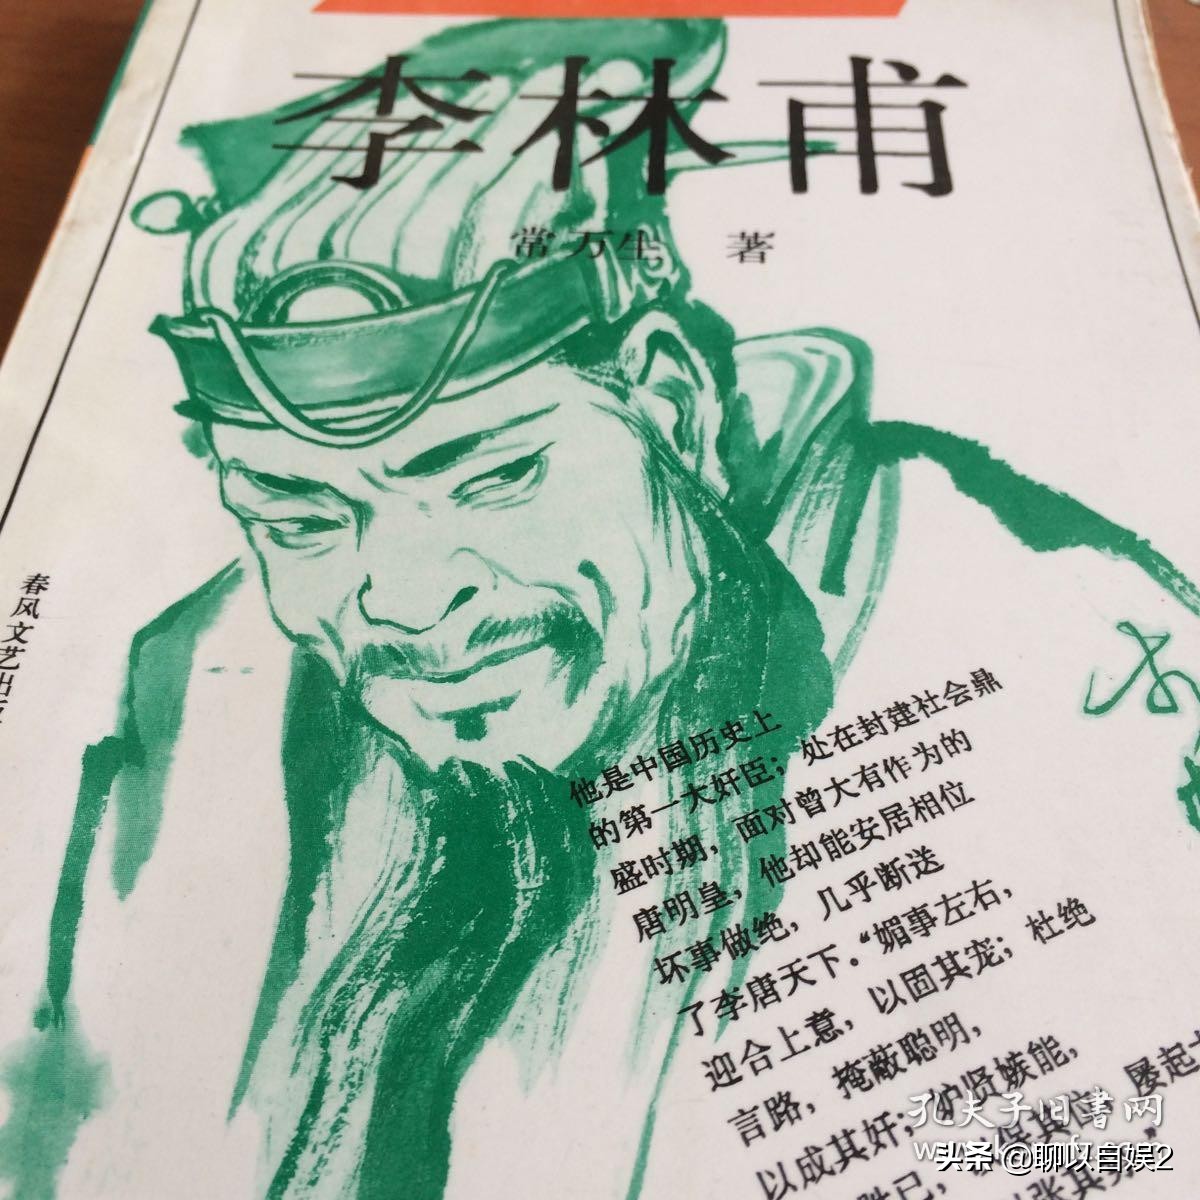 李林甫
常万生 著
春风文艺出版
他是中国历史上
的第一大奸臣；处在封建社会鼎
盛时期，面对曾大有作为的
唐明皇，他却能安居相位
坏事做绝，几乎断送
了李唐天下。“媚事左右，
迎合上意，以固其宠；杜绝
言路，掩蔽聪明，
以成其奸；妒贤嫉能，
胜己，以保其位；屡起大
张其势”，
孔夫子旧书网
头条 @聊以自娱2